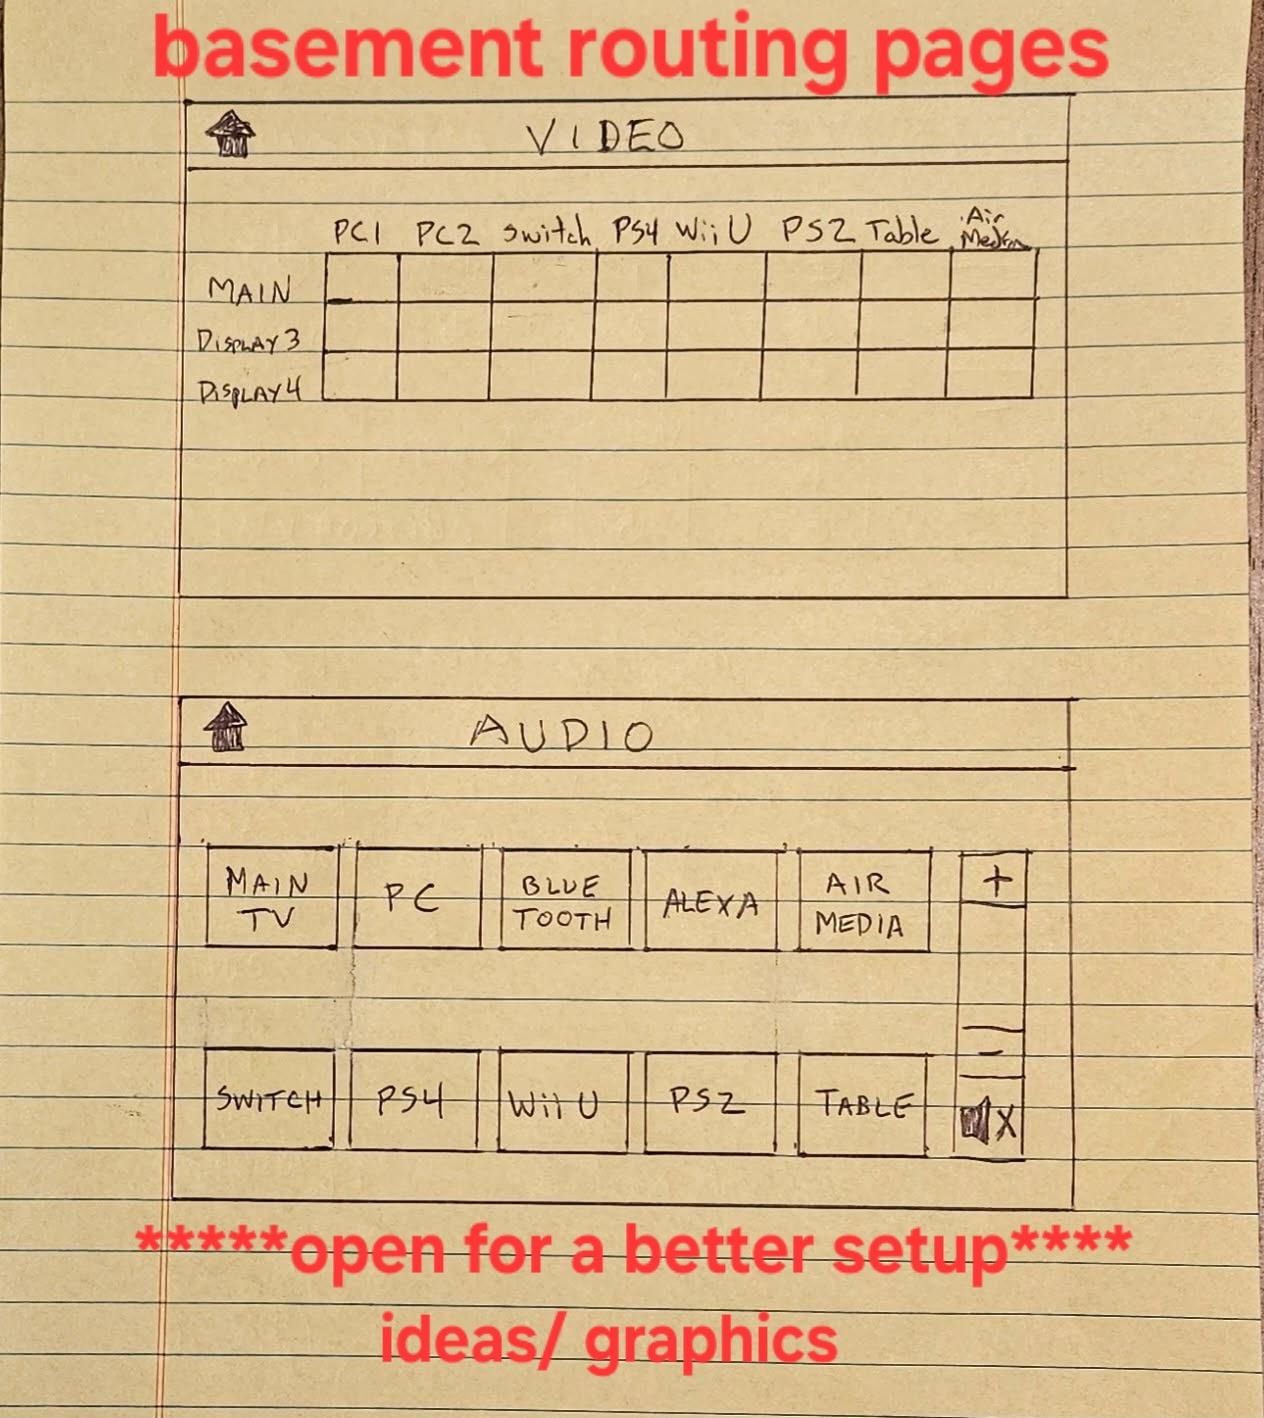 basement routing pages
VIDEO
PC1 PC2 Switch PS4 Wii U PS2 Table Air
MAIN
DISPLAY3
DISPLAY4
AUDIO
MAIN TV
PC
BLUE TOOTH
ALEXA
AIR MEDIA
+
-
SWITCH
PS4
Wii U
PS2
TABLE
X
*****open for a better setup****
ideas/ graphics